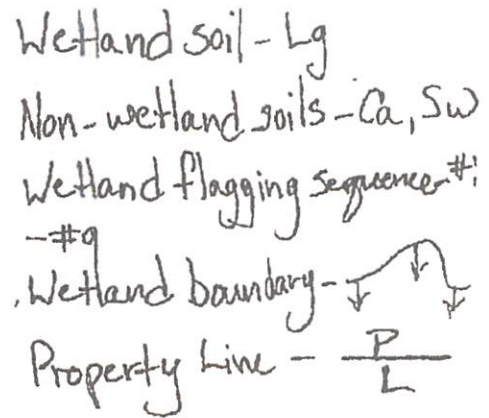 Wetland soil - Lg
Non-wetland soils - Ca, Sw
Wetland flagging sequence - #1
- #9
Wetland boundary -
Property Line - P
L